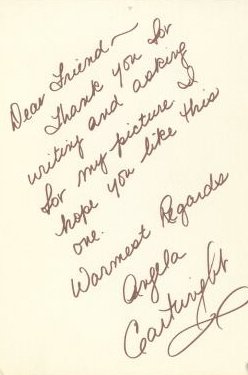 Dear Friend~
Thank you for
writing and asking
for my picture I
hope you like this
one.
Warmest Regards
Angela
Cartwright